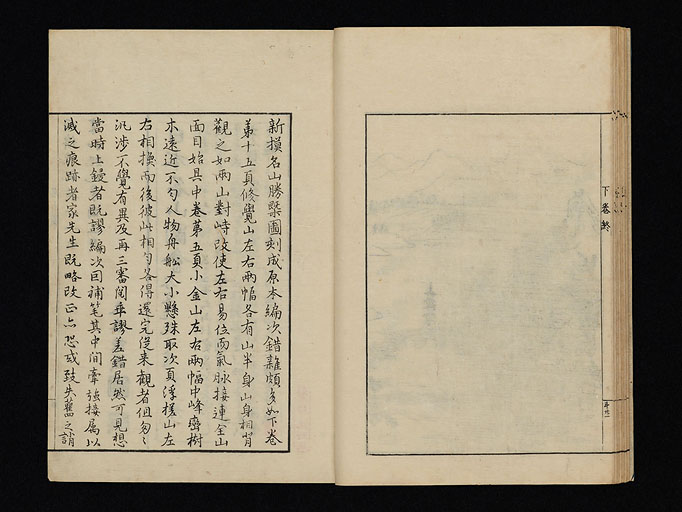 下卷終
新摸名山勝槩圖刻成原本編次錯雜頗多如下卷
第十五頁修覺山左右兩幅各有山半身山身相背
觀之如兩山對峙改使左右易位而氣脉接連全山
面目始具中卷第五頁小金山左右兩幅中峰巒樹
木遠近不勻人物舟舩大小懸殊取次頁浮槎山左
右相換而後彼此相勻各得還完從來觀者但匆〻
汎涉不覺有異及再三審閱乖謬差錯居然可見想
當時上鋟者既謬編次因補筆其中間牽強接属以
滅之痕跡者家先生既略改正亦恐或致失舊之誚